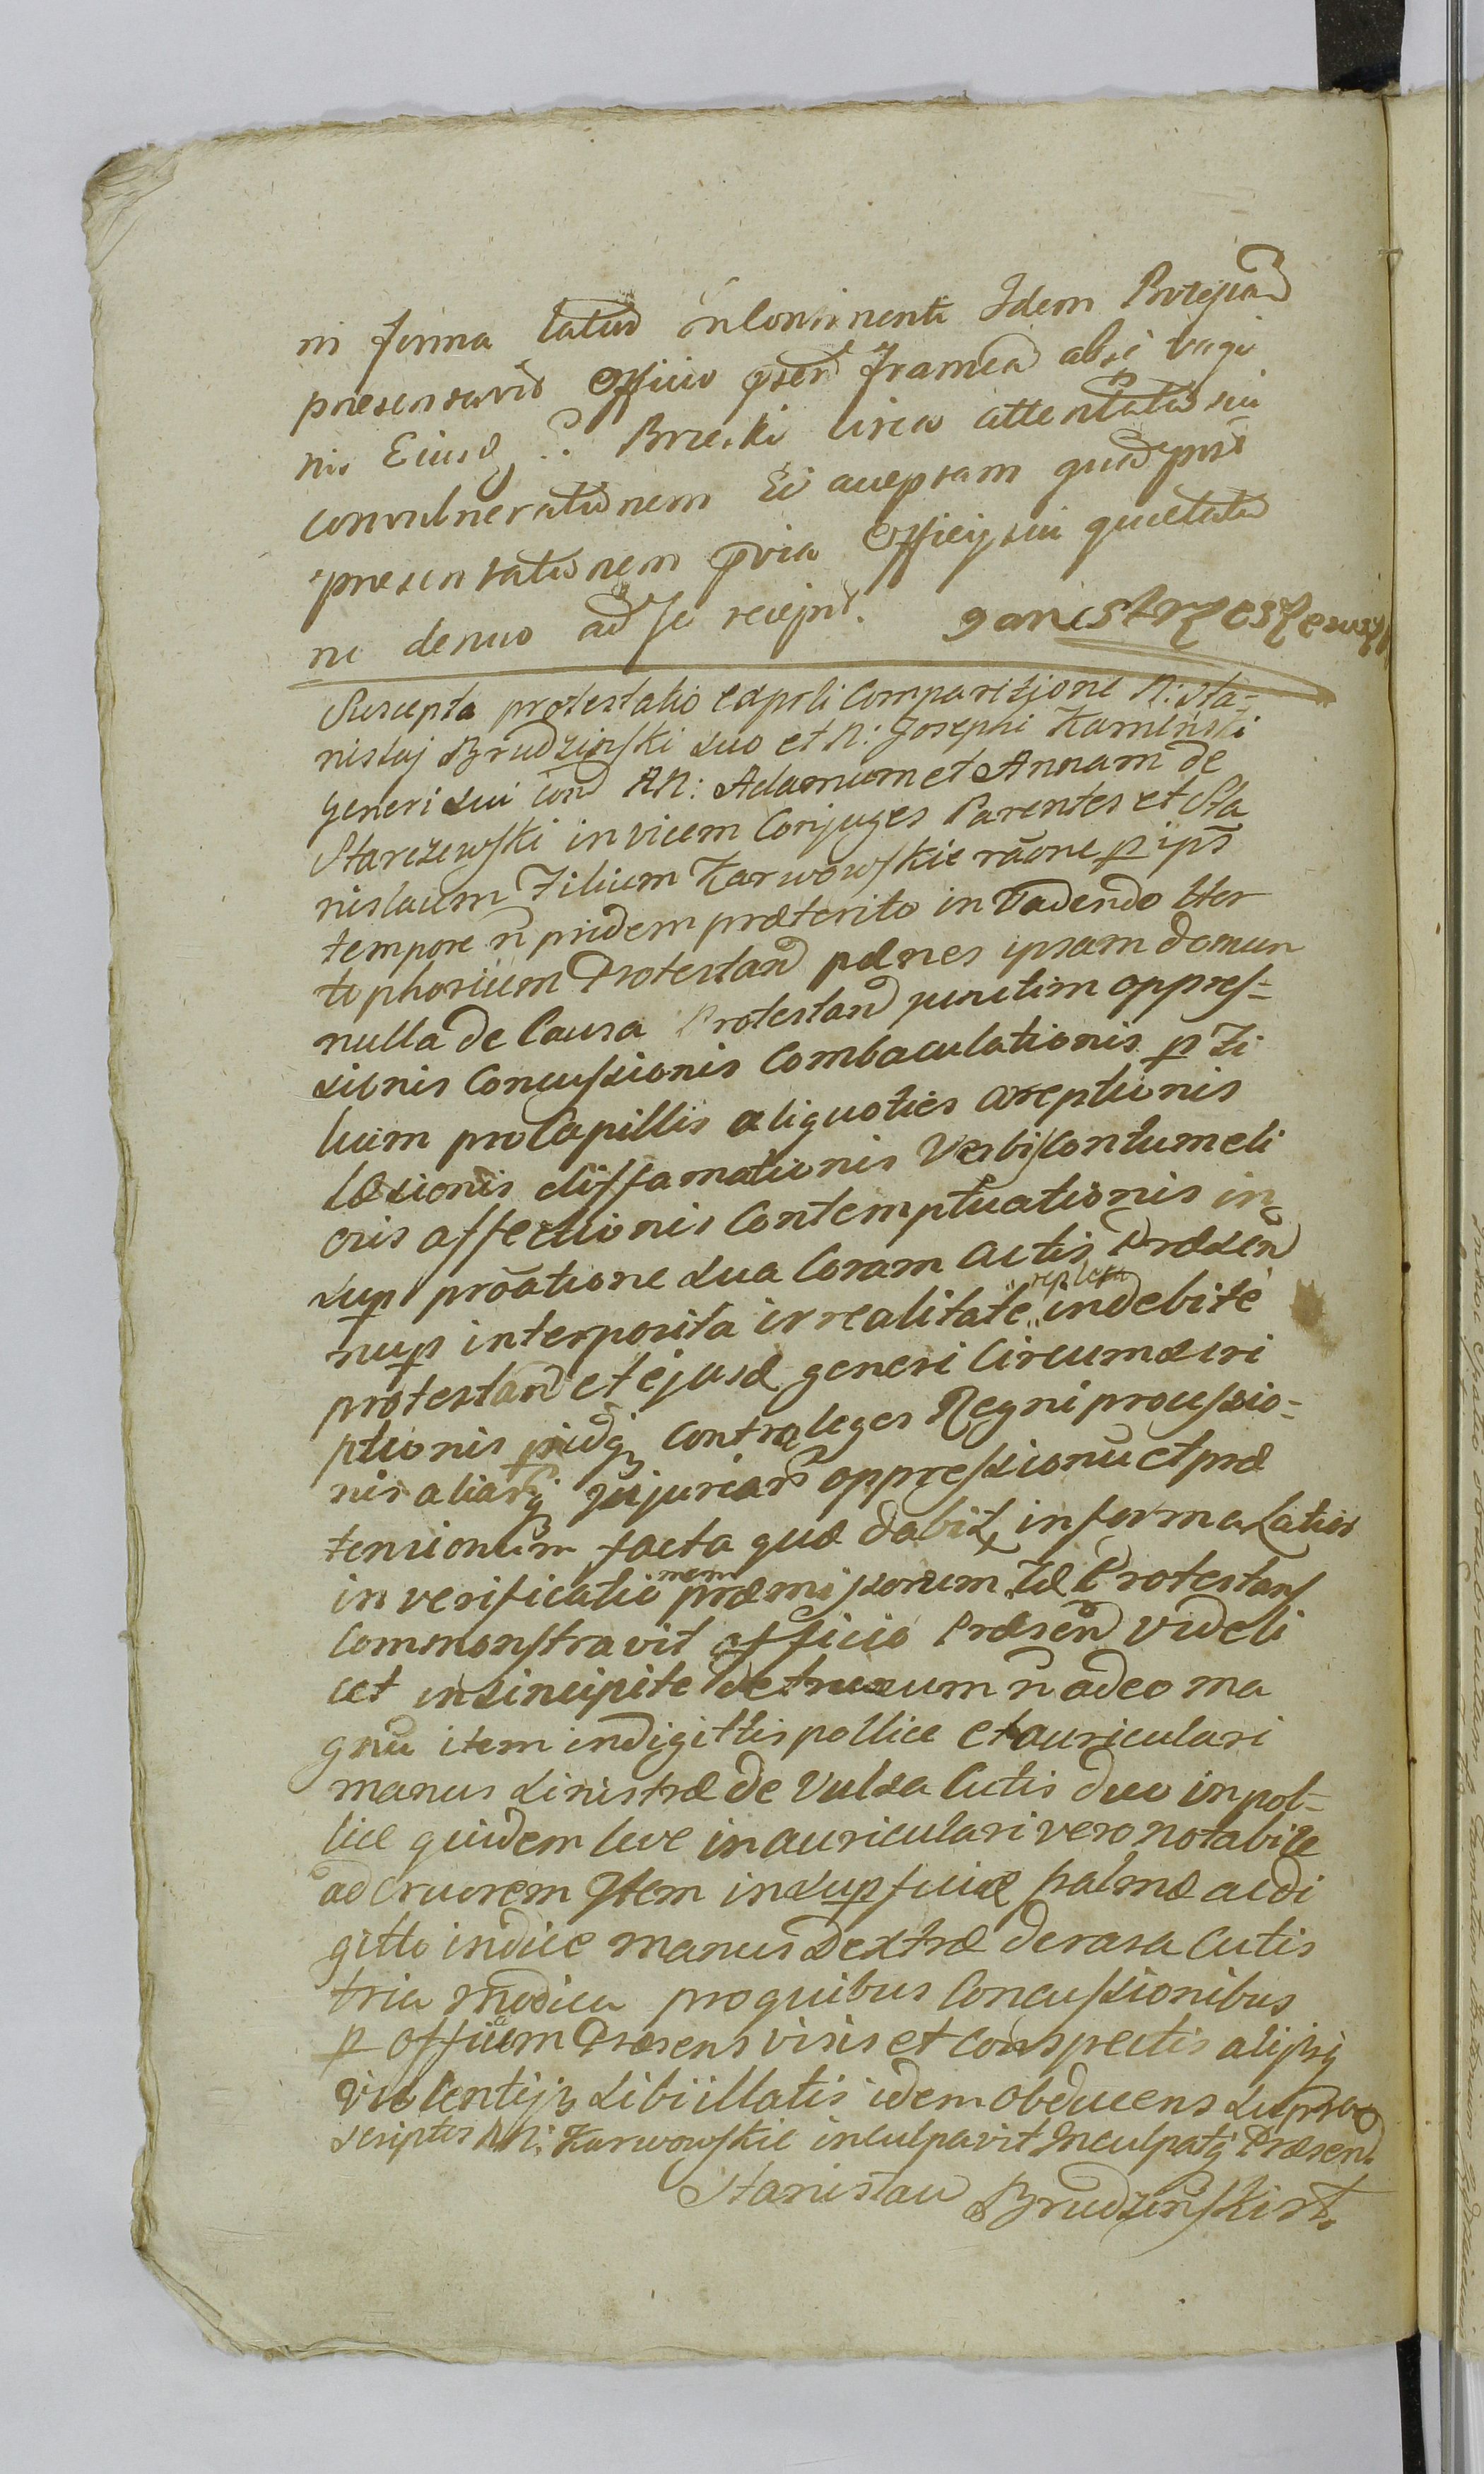 in forma latiori incontinenti Idem Protestand
presentavit Officio psen Frameā absq vagi
nis Eiusd G: Brzeski circa attentatā sui
convulnerationem Ei acceptam quā post
presentationem pvia Officij sui quietatio
ne denuo ad se recepit. Jan Strzeszewski
Suscepta protestatio ex psli Comparitione N: Sta-
nislaj Brudzinski suo et N: Josephi Kaminski
generi sui cons NN: Adamum et Annam de
Starczewski invicem Conjuges Parentes et Sta
nislaum Filium Karwowskie rāone p ips
tempore ñ pridem præterito invadendo Hor
tophorium Protestand pænes ipsam domum
nulla de Causa Protestand junctim oppres=
sionis Concussionis Combaculationis p Fi
lium pro Capillis aliquoties areptionis
læsionis diffamationis Verbis Contumeli
osis affectionis Contemptuationis in
sup prōatione sua Coram Actis Præsen
nup interposita irrealitate repleta indebite
protestand et ejusd generi Circumscri
ptionis pidq contra leges Regni processio=
nis aliarq injuriar oppressionū et præ
tensionum facta quæ dabit in forma latiori
in verificationem præmissorum Id Protestans
Commonstravit officio Præsen videli
cet in sincipite detrusum ñ adeo ma
gnū item in digittis pollice et auriculari
manus sinistræ de vulsa Cutis duo in pol-
lice quidem leve in auriculari vero notabile
ad cruorem Item in supficie palmæ ac di
gitto indice manus dextræ derasa Cutis
tria modica pro quibus Concussionibus
p officiam Præsens visis et conspectis alijsq
violentijs sibi illatis idem obducens supra
scriptos NN: Karwowskie inculpavit Inculpatq Præsen.
Stanisłau Brudzinski st.